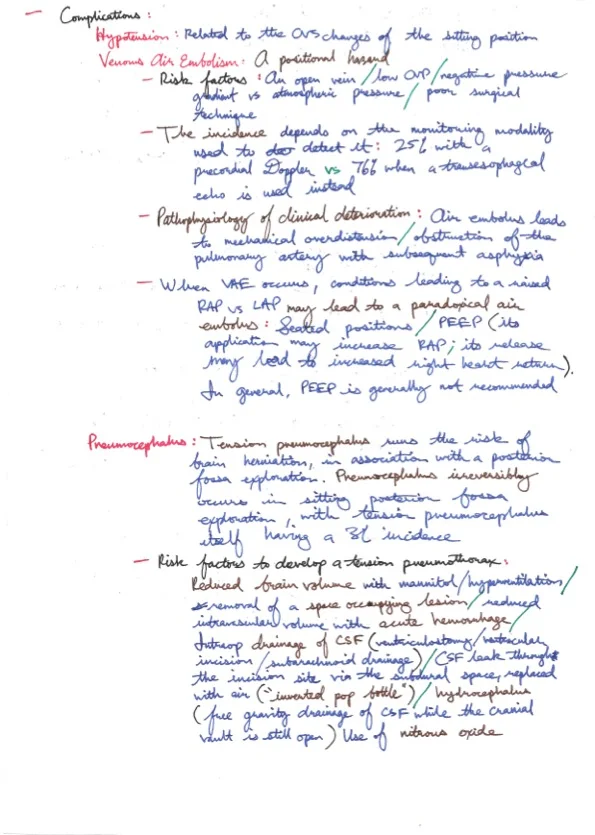 — Complications :
Hypotension : Related to the CVS changes of the sitting position
Venous Air Embolism : A positional hazard
— Risk factors : An open vein / low CVP / negative pressure
gradient vs atmospheric pressure / poor surgical
technique
— The incidence depends on the monitoring modality
used to detect it : 25% with a
precordial Doppler vs 76% when a transesophageal
echo is used instead
— Pathophysiology of clinical deterioration : Air embolus leads
to mechanical overdistension / obstruction of the
pulmonary artery with subsequent asphyxia
— When VAE occurs, conditions leading to a raised
RAP vs LAP may lead to a paradoxical air
embolus : Seated positions / PEEP (its
application may increase RAP ; its release
may lead to increased right heart return).
In general, PEEP is generally not recommended
Pneumocephalus : Tension pneumocephalus runs the risk of
brain herniation, in association with a posterior
fossa exploration. Pneumocephalus irreversibly
occurs in sitting posterior fossa
exploration, with tension pneumocephalus
itself having a 3% incidence
— Risk factors to develop a tension pneumothorax :
Reduced brain volume with mannitol / hyperventilation /
removal of a space occupying lesion / reduced
intravascular volume with acute hemorrhage /
Intraop drainage of CSF (ventriculostomy / ventricular
incision / subarachnoid drainage) / CSF leak throught
the incision site via the subdural space, replaced
with air ("inverted pop bottle") / hydrocephalus
(free gravity drainage of CSF while the cranial
vault is still open) Use of nitrous oxide